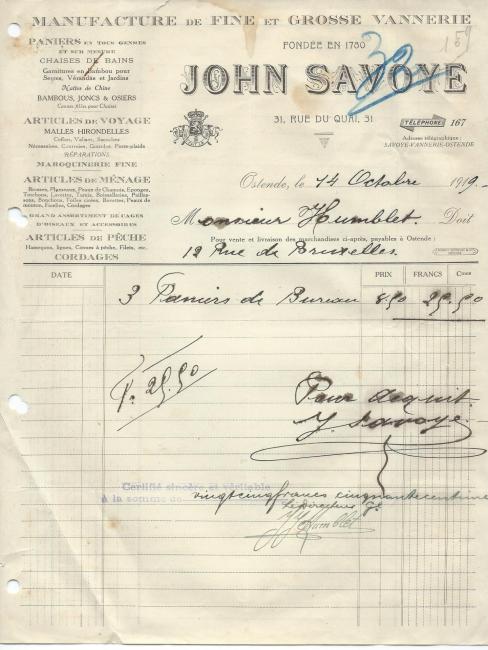 MANUFACTURE DE FINE ET GROSSE VANNERIE
PANIERS EN TOUS GENRES
ET SUR MESURE
CHAISES DE BAINS
Garnitures en Bambou pour
Serres, Vérandas et Jardins
Nattes de Chine
BAMBOUS, JONCS & OSIERS
Cannes filés pour Chaises
ARTICLES DE VOYAGE
MALLES HIRONDELLES
Coffres, Valises, Sacoches
Nécessaires, Courroies, Gourdes, Porte-plaids
RÉPARATIONS
MAROQUINERIE FINE
ARTICLES DE MÉNAGE
Brosses, Plumeaux, Peaux de Chamois, Éponges,
GRAND ASSORTIMENT DE CAGES
D'OISEAUX ET ACCESSOIRES
ARTICLES DE PÊCHE
Hameçons, lignes, Cannes à pêche, Filets, etc.
CORDAGES
FONDÉE EN 1780
39
159
JOHN SAVOYE
31, RUE DU QUAI, 31
TÉLÉPHONE 167
Adresse télégraphique :
SAVOYE-VANNERIE-OSTENDE
Ostende, le 14 Octobre 1919
Monsieur Humblet. Doit
Pour vente et livraison des marchandises ci-après, payables à Ostende :
12 Rue de Bruxelles.
DATE PRIX FRANCS Cmes
3 Paniers de Bureau 8.50 25.50
Fr. 25.50
Pour acquit.
J. Savoye
Certifié sincère et véritable
À la somme de vingtcinqfrancs cinquantecentimes
Le Directeur
Humblet